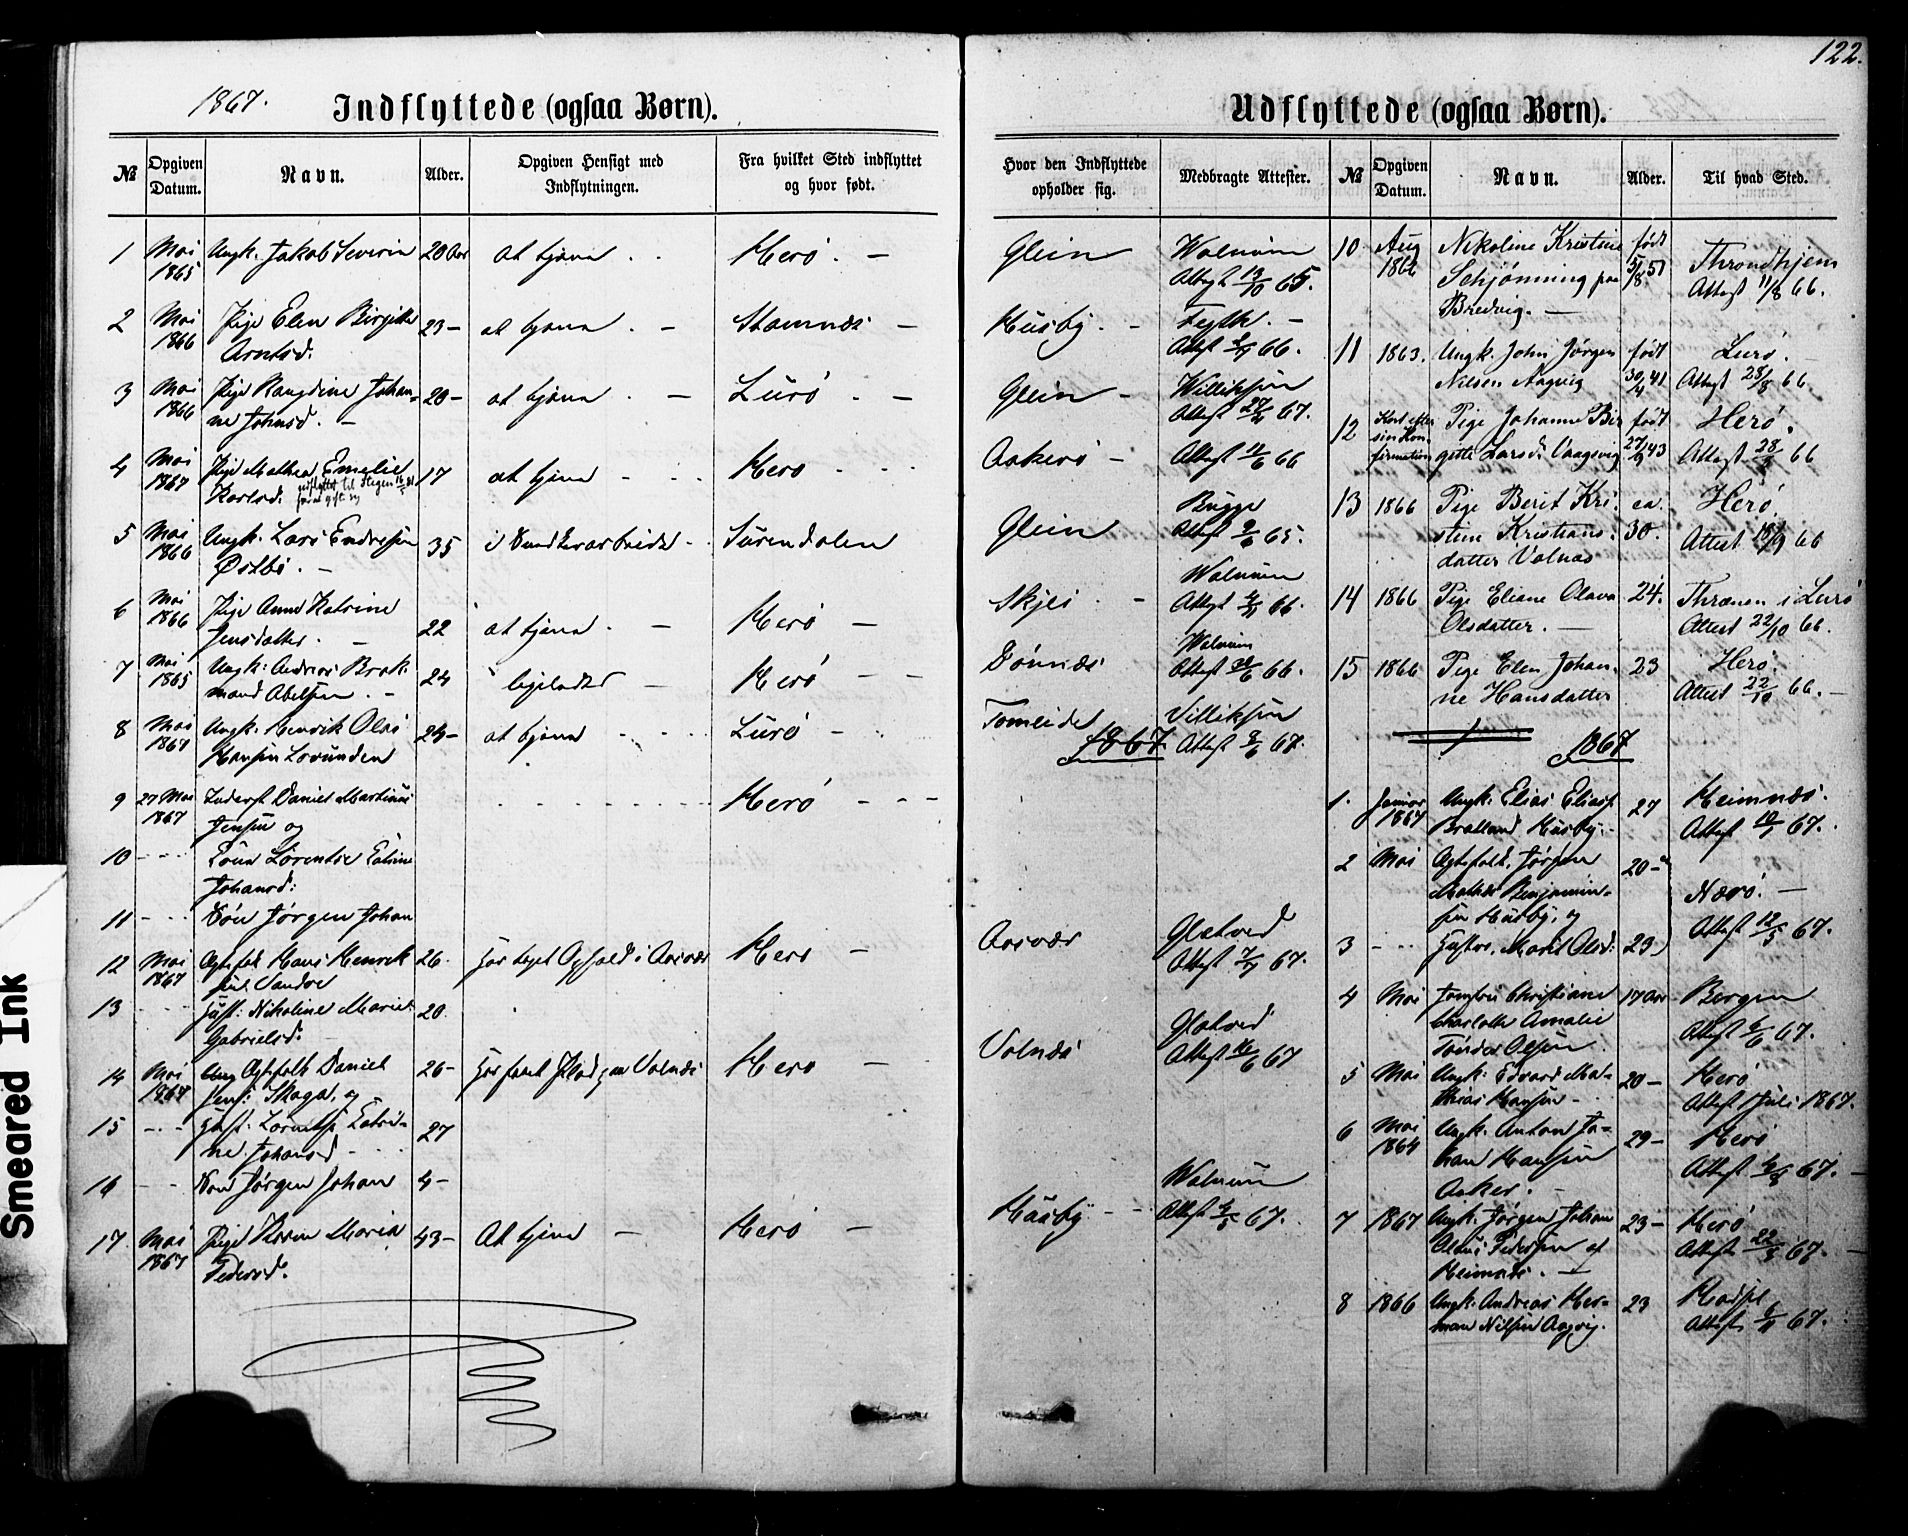 122.
1867.
Indflyttede (ogsaa Børn).
№
Opgiven Datum.
Navn.
Alder.
Opgiven Hensigt med Indflytningen.
Fra hvilket Sted indflyttet og hvor født.
Hvor den Indflyttede opholder sig.
Medbragte Attester.
1 Mai 1865 Ungk. Jakob Severin 20 Aar at tjene Herö. Glein Walnum Attest 13/10 65.
2 Mai 1866 Pige Elen Birgitte Arntsd. 23 at tjene Stamnes Husby.
Attest 66.
3 Mai 1866 Johanne Johnsd. 20 at tjene Lurö Glein
Attest 67.
4 Mai 1867 Pige Mathea Emelie Karlsd. 17 at tjene Herö Aakerö Attest 66
5 Mai 1866 Ungk. Lars Endresen Östbö. 35 Surendalen Glein Bugge Attest 65.
6 Mai 1866 Pige Anne Katrine Jensdatter. 22 at tjene Herö Skjei Walnum Attest 66.
7 Mai 1865 Ungk. Andreas Abelsen 24 Herö Dönnes Walnum Attest 66.
8 Mai 1867 Ungk. Henrik Olai Hansen Lovunden 24 at tjene Lurö Tomeide Attest 67.
1867.
9 27 Mai 1867 Inderst Daniel Martinus Jensen og Herö
10 Kona Lorentse Katrine Johansd:
11 Sön Jörgen Johan
12 Mai 1867 Hans Henrik 26. har taget Ophold i Aasvær Herö Aasvær Glatved Attest 67.
13 Hust: Nikoline Marie Gabrielsd. 20.
14 Mai 1867 Daniel Jens: Skaga, og 26 har faaet Plads paa Volnes Herö Volnes Glatved Attest 67
15 Hust: Katrine Johansd 27
16 Sön Jörgen Johan 4
17 Mai 1867 Pige Maria Pedersd. 43 At tjene Herö Husby Walnum Attest 67.
Udflyttede (ogsaa Børn).
№
Opgiven Datum.
Navn.
Alder.
Til hvad Sted.
10 Aug 1866 Nikoline Kristine Schjønning paa Bredvig. født 5/8 51 Throndhjem Attest 11/8 66.
11 1863. Ungk. John Jørgen Nilsen Aagvig født 30/4 41 Lurö. Attest 28/8 66
12 Kort efter sin Konfirmation Pige Johanne Birgitte Larsd. Vaagsvig født 27/9 43 Herö. Attest 66
13 1866 Pige Berit Kristine Kristiansdatter Volnæs ca. 30. Herö. Attest 18/9 66
14 1866 Pige Eliane Olava Olsdatter. 24. Thrænen i Lurö Attest 22/10 66.
15 1866 Pige Elen Johanne Hansdatter 23 Herö. Attest 22/10 66.
1867
1. Januar 1867 Ungk. Elias Eliass. Bratland Husby. 27 Heimnæs. Attest 67.
2 Mai Jörgen Benjaminsen Husby, og 20 Nærö. Attest 67.
3 Hustru Marit Olsd: 23
4 Mai Jomfru Christiane Charlotte Amalie Olsen 17 Aar Bergen Attest 67.
5 Mai Ungk. Edvard Mathias Hansen 20 Herö Attest 1 Juli 1867.
6 Mai 1864 Ungk. Anton Johan Hansen Aaker. 29 Herö Attest 67.
7 1867 Ungk. Jörgen Johan Pedersen af Heimnes. 23 Herö Attest 67.
8 1866 Ungk. Andreas Herman Nilsen Aagvig. 23 Attest 67.
Smeared Ink